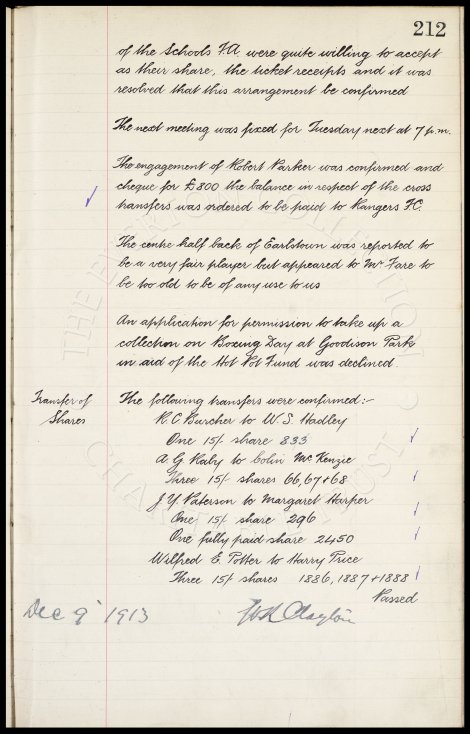 212
of the Schools F.A. were quite willing to accept
as their share, the ticket receipts and it was
resolved that this arrangement be confirmed
The next meeting was fixed for Tuesday next at 7 p.m.
The engagement of Robert Parker was confirmed and
cheque for £800 the balance in respect of the cross
transfers was ordered to be paid to Rangers F.C.
The centre half back of Earlstown was reported to
be a very fair player but appeared to Mr Fare to
be too old to be of any use to us
An application for permission to take up a
collection on Boxing Day at Goodison Park
in aid of the Hot Pot Fund was declined.
Transfer of
Shares
The following transfers were confirmed:-
R. C Burcher to W. S. Hadley
One 15/- share 833
A. G. Raby to Colin McKenzie
Three 15/- shares 66, 67 + 68
J. Y. Paterson to Margaret Harper
One 15/- share 296
One fully paid share 2450
Wilfred E. Potter to Harry Price
Three 15/- shares 1886, 1887 + 1888
Passed
Dec 9 1913
Clayton